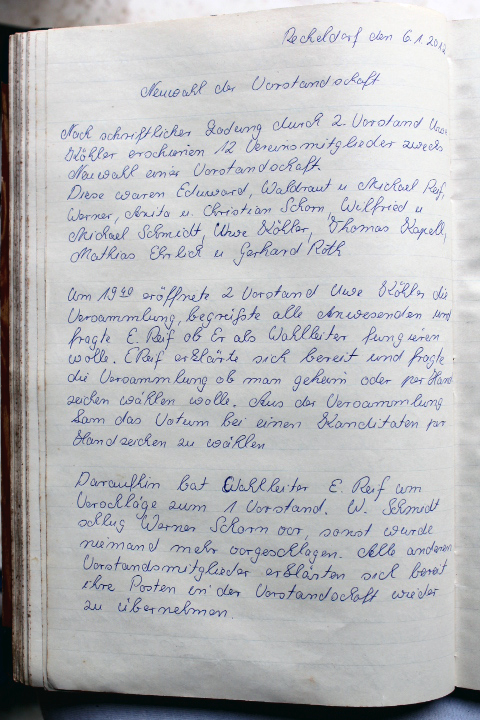 Recheldorf den 6.1.2012
Neuwahl der Vorstandschaft
Nach schriftlicher Ladung durch 2. Vorstand Uwe
Köhler erschienen 12 Vereinsmitglieder zwecks
Neuwahl einer Vorstandschaft.
Diese waren Eduward, Waldraut u Michael Reif,
Werner, Anita u. Christian Schorn, Wilfried u
Michael Schmidt, Uwe Köhler, Thomas Kapell,
Mathias Ehrlich u Gerhard Roth
Um 19⁴⁰ eröffnete 2 Vorstand Uwe Köhler die
Versammlung, begrüßte alle Anwesenden und
fragte E. Reif ob Er als Wahlleiter fungieren
wolle. E Reif erklärte sich bereit und fragte
die Versammlung ob man geheim oder per Hand
zeichen wählen wolle. Aus der Versammlung
kam das Votum bei einen Kanditaten per
Handzeichen zu wählen
Daraufhin bat Wahlleiter E. Reif um
Vorschläge zum 1 Vorstand. W. Schmidt
schlug Werner Schorn vor, sonst wurde
niemand mehr vorgeschlagen. Alle anderen
Vorstandsmitglieder erklärten sich bereit
ihre Posten in der Vorstandschaft wieder
zu übernehmen.